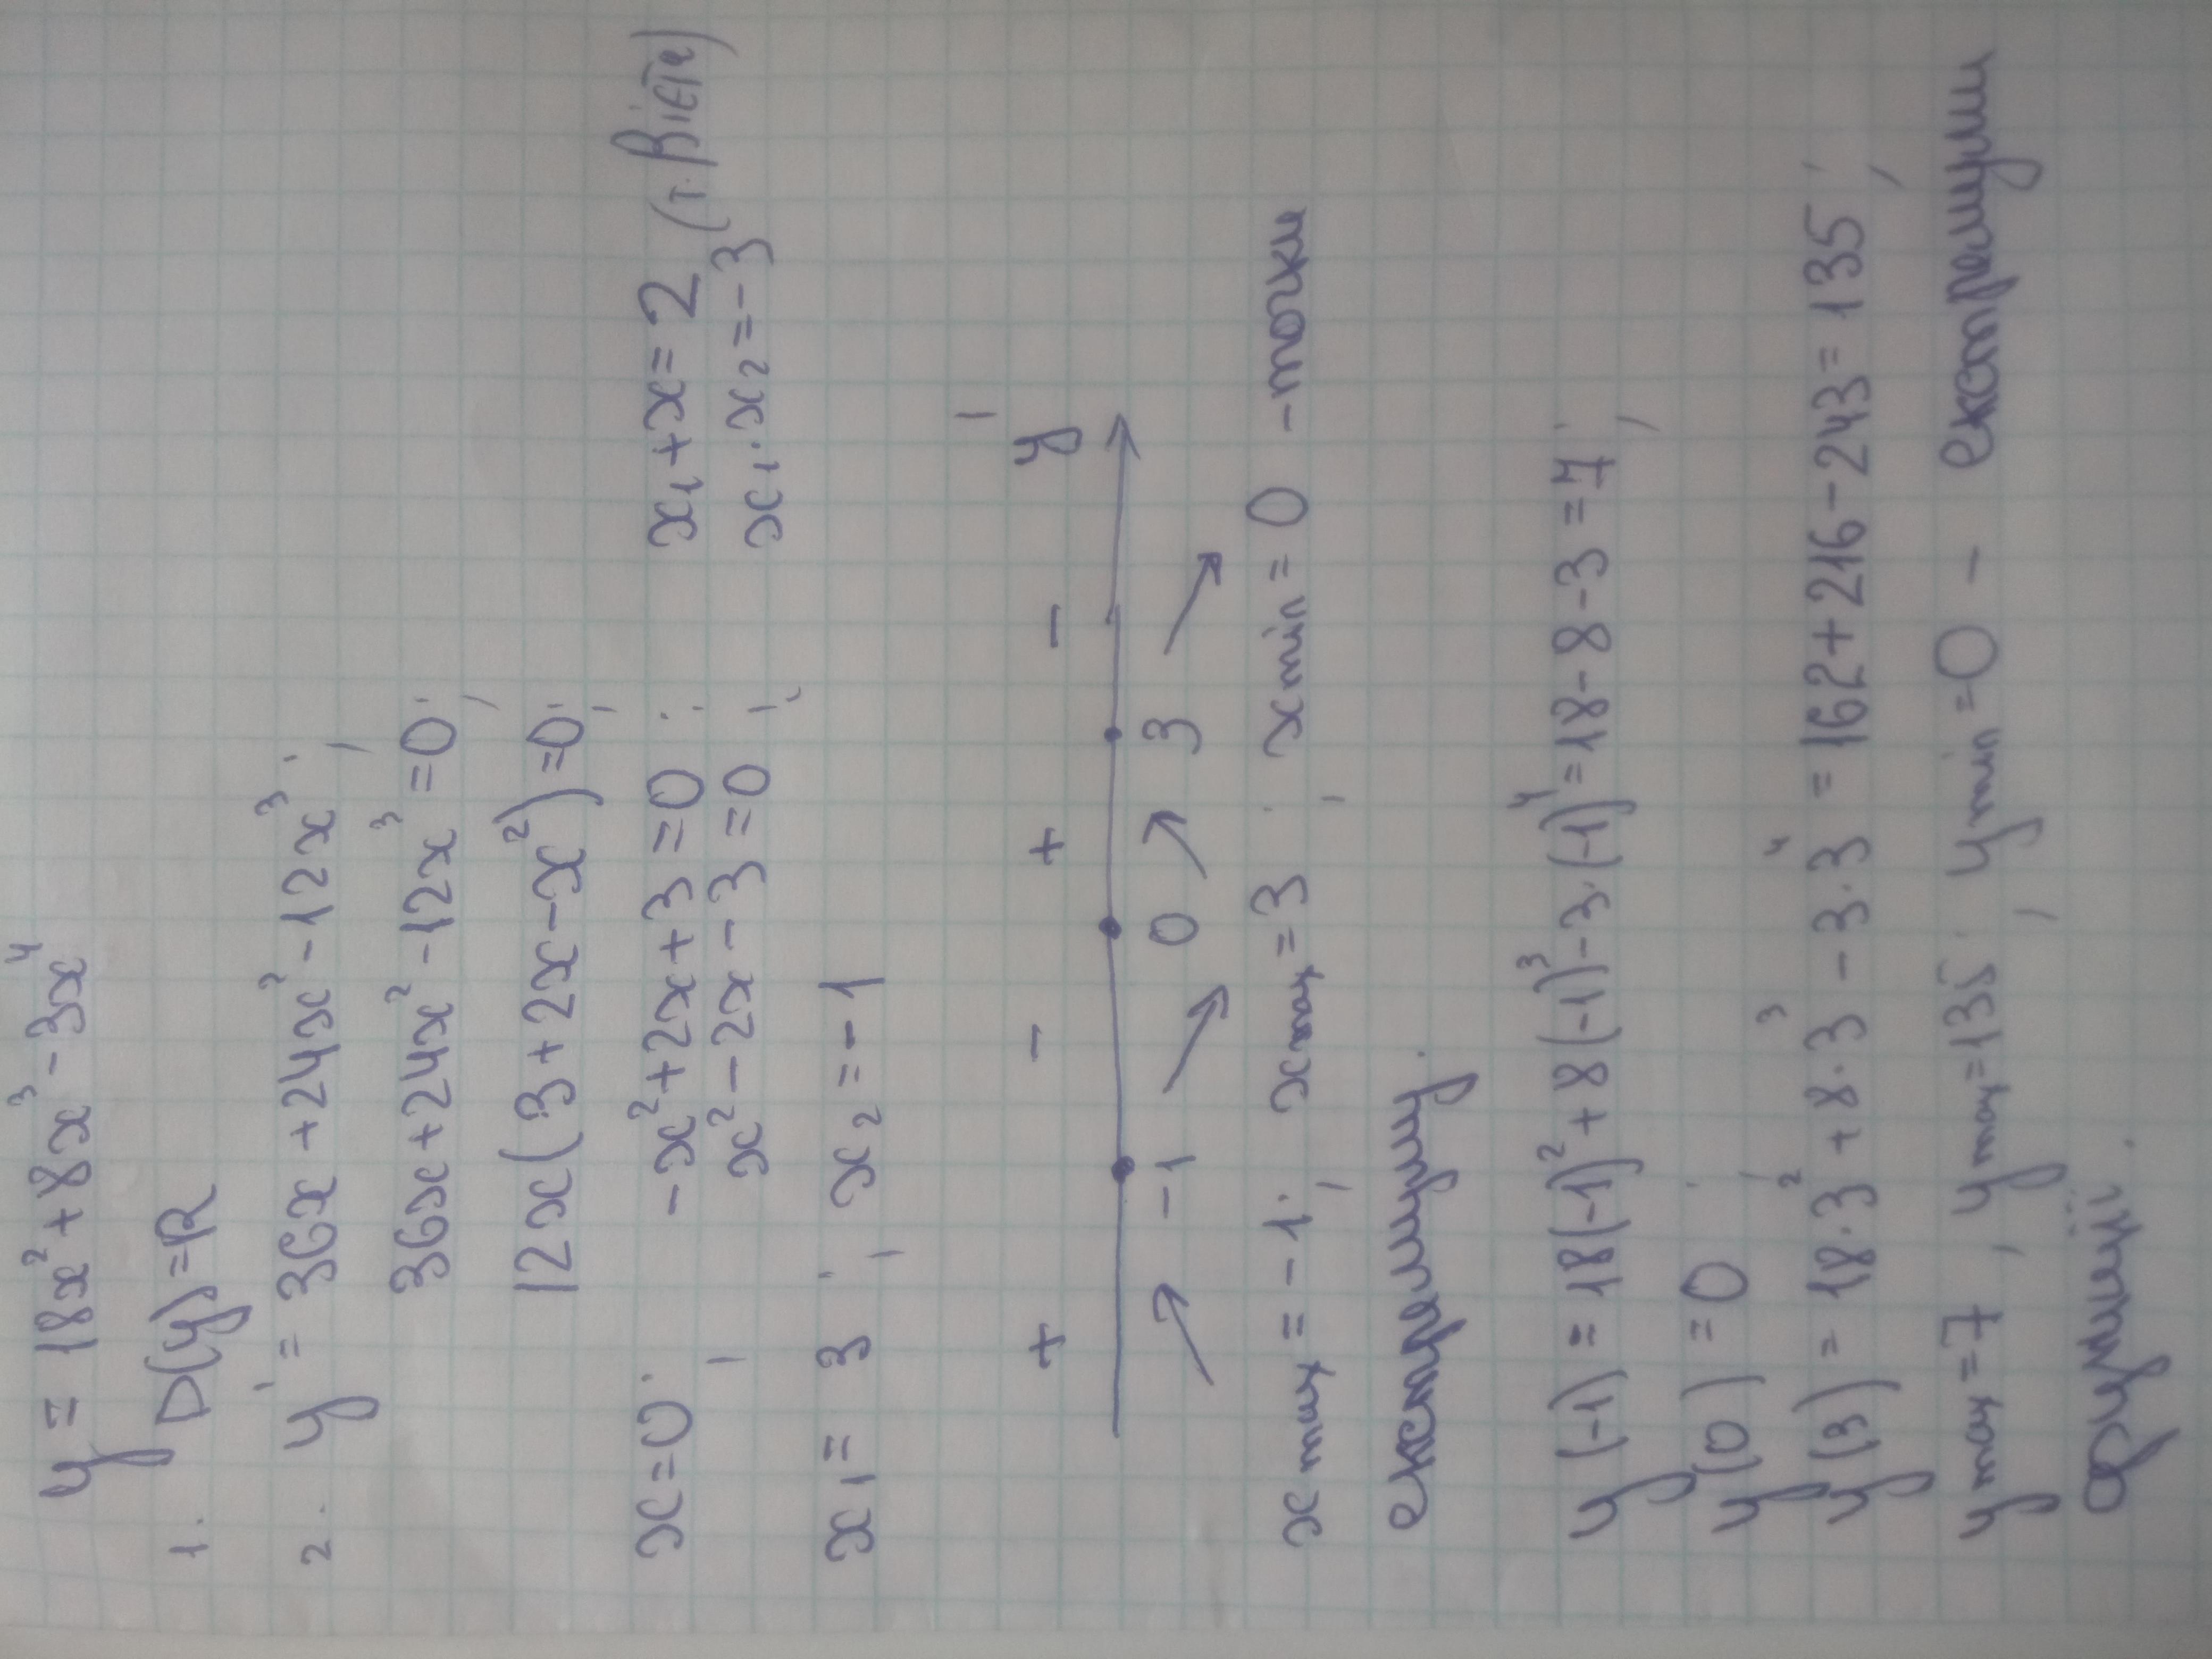 y = 18x² + 8x³ - 3x⁴
1. D(y) = R
2. y' = 36x + 24x² - 12x³;
36x + 24x² - 12x³ = 0;
12x(3 + 2x - x²) = 0;
x = 0; -x² + 2x + 3 = 0; x₁ + x = 2 (т. Вієта)
x² - 2x - 3 = 0; x₁ · x₂ = -3
x₁ = 3; x₂ = -1
+ - + - y'
↗ -1 ↘ 0 ↗ 3 ↘
x max = -1; x max = 3; x min = 0 - точки
екстремуму.
y(-1) = 18(-1)² + 8(-1)³ - 3·(-1)⁴ = 18 - 8 - 3 = 7;
y(0) = 0;
y(3) = 18·3² + 8·3³ - 3·3⁴ = 162 + 216 - 243 = 135;
y max = 7, y max = 135; y min = 0 - екстремуми
функції.